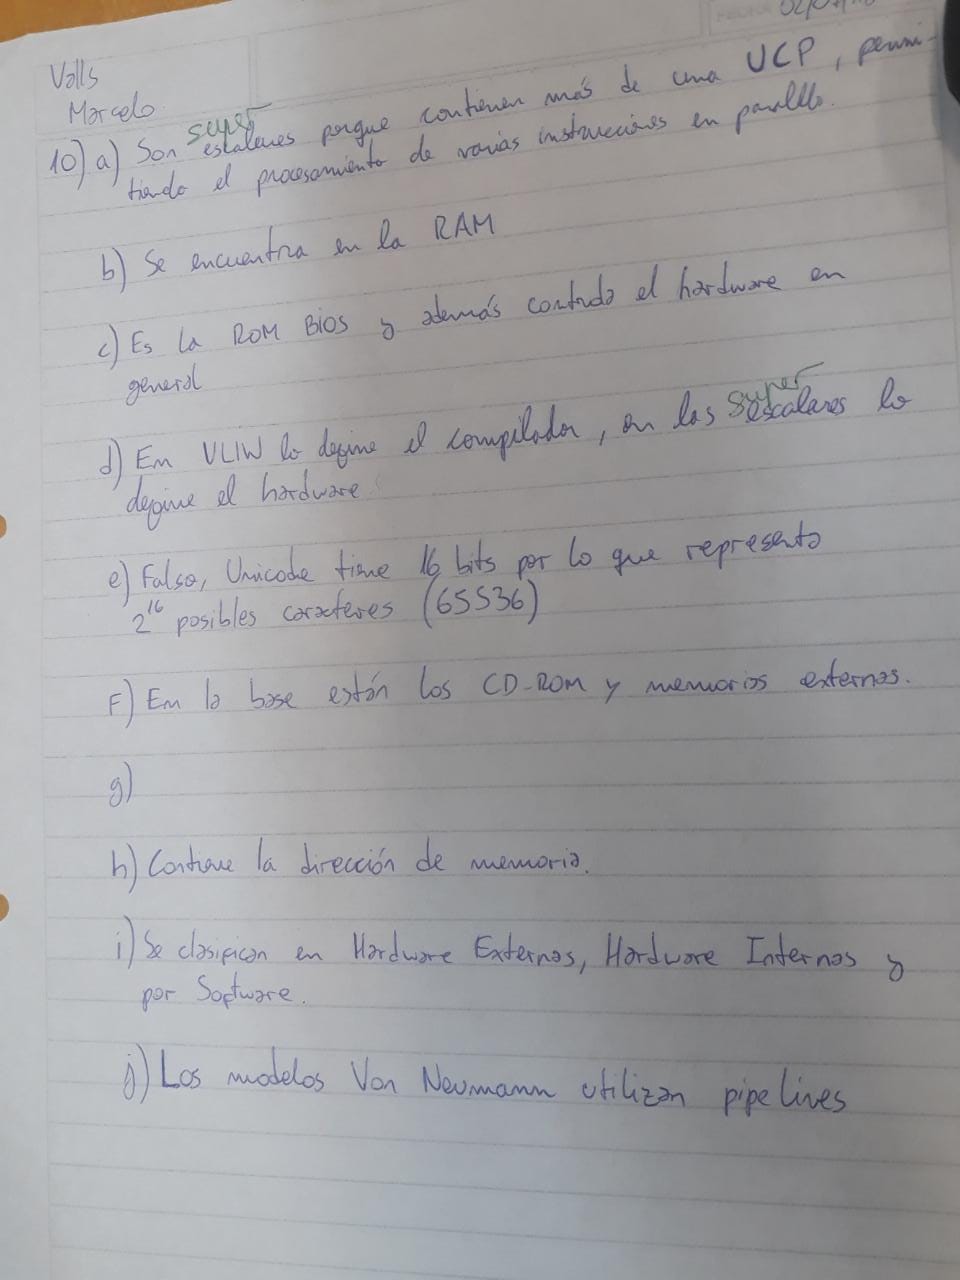 02/07/
Valls
Marcelo
10) a) Son super escalares porque contienen más de una UCP, permi-
tiendo el procesamiento de varias instrucciones en paralelo.
b) Se encuentra en la RAM
c) Es la ROM BIOS y además contada el hardware en
general
d) En VLIW lo define el compilador, en las super escalares lo
define el hardware.
e) Falso, Unicode tiene 16 bits por lo que representa
2^16 posibles caracteres (65536)
F) En la base están los CD-ROM y memorias externas.
g)
h) Contiene la dirección de memoria.
i) Se clasifican en Hardware Externas, Hardware Internas y
por Software.
j) Los modelos Von Neumann utilizan pipelines